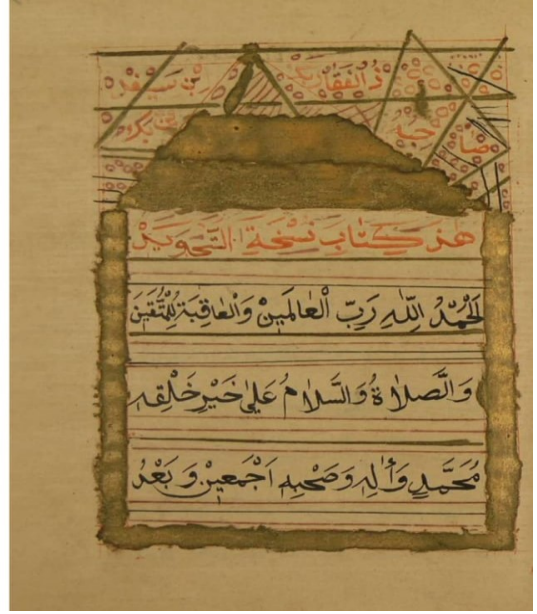 ذُالْفَقَار
صَاحِبُهُ
هٰذَ كِتَابَ نُسْخَةِ التَّجْوِيدْ
اَلْحَمْدُ لِلّٰهِ رَبِّ الْعٰالَمِينْ وَالْعٰاقِبَةُ لِلْمُتَّقِينَ
وَالصَّلاٰةُ وَالسَّلاٰمُ عَلىٰ خَيْرِ خَلْقِهِ
مُحَمَّدٍ وَاٰلِهِ وَصَحْبِهِ اَجْمَعِينْ وَبَعْدُ